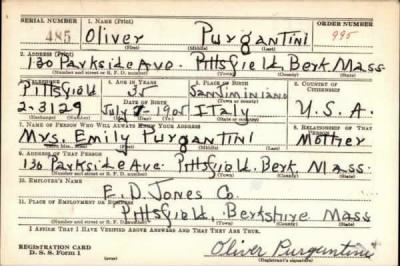 SERIAL NUMBER 1. NAME (Print) ORDER NUMBER
485 Oliver Purgantini 995
(First) (Middle) (Last)
2. ADDRESS (Print)
130 Parkside Ave. Pittsfield, Berk Mass
(Number and street or R. F. D. number) (Town) (County) (State)
3. TELEPHONE 4. AGE IN YEARS 5. PLACE OF BIRTH 6. COUNTRY OF CITIZENSHIP
Pittsfield 35 Sanjiminiano
DATE OF BIRTH
2-3129 July 2 1905 Italy U.S.A.
7. NAME OF PERSON WHO WILL ALWAYS KNOW YOUR ADDRESS 8. RELATIONSHIP OF THAT PERSON
Mrs. Emily Purgantini Mother
(Mr., Mrs., Miss) (First) (Middle) (Last)
9. ADDRESS OF THAT PERSON
130 Parkside Ave. Pittsfield, Berk Mass.
(Number and street or R. F. D. number) (Town) (County) (State)
10. EMPLOYER'S NAME
E. D. Jones Co.
11. PLACE OF EMPLOYMENT OR BUSINESS
Pittsfield, Berkshire Mass
(Number and street or R. F. D. number) (Town) (County) (State)
I AFFIRM THAT I HAVE VERIFIED ABOVE ANSWERS AND THAT THEY ARE TRUE.
REGISTRATION CARD
D. S. S. Form 1
Oliver Purgantini
(Registrant's signature)